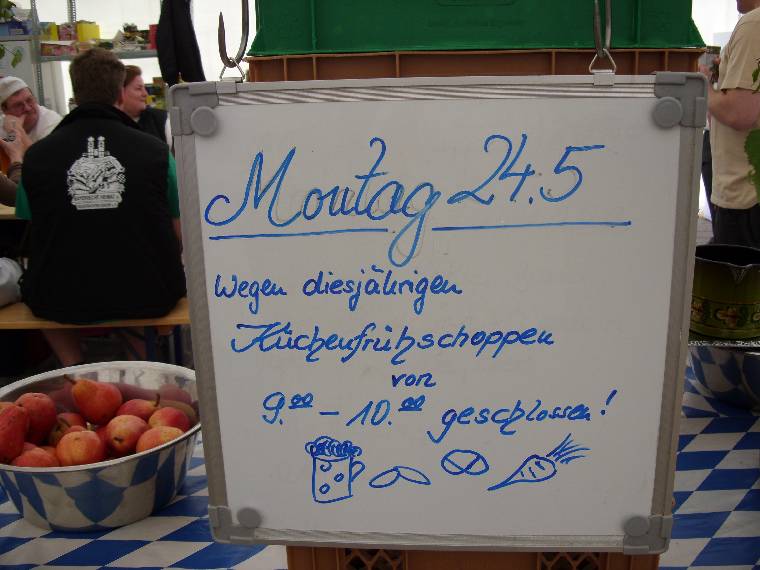 Montag 24.5
Wegen diesjährigen
Küchenfrühschoppen
von
9.00 - 10.00 geschlossen!